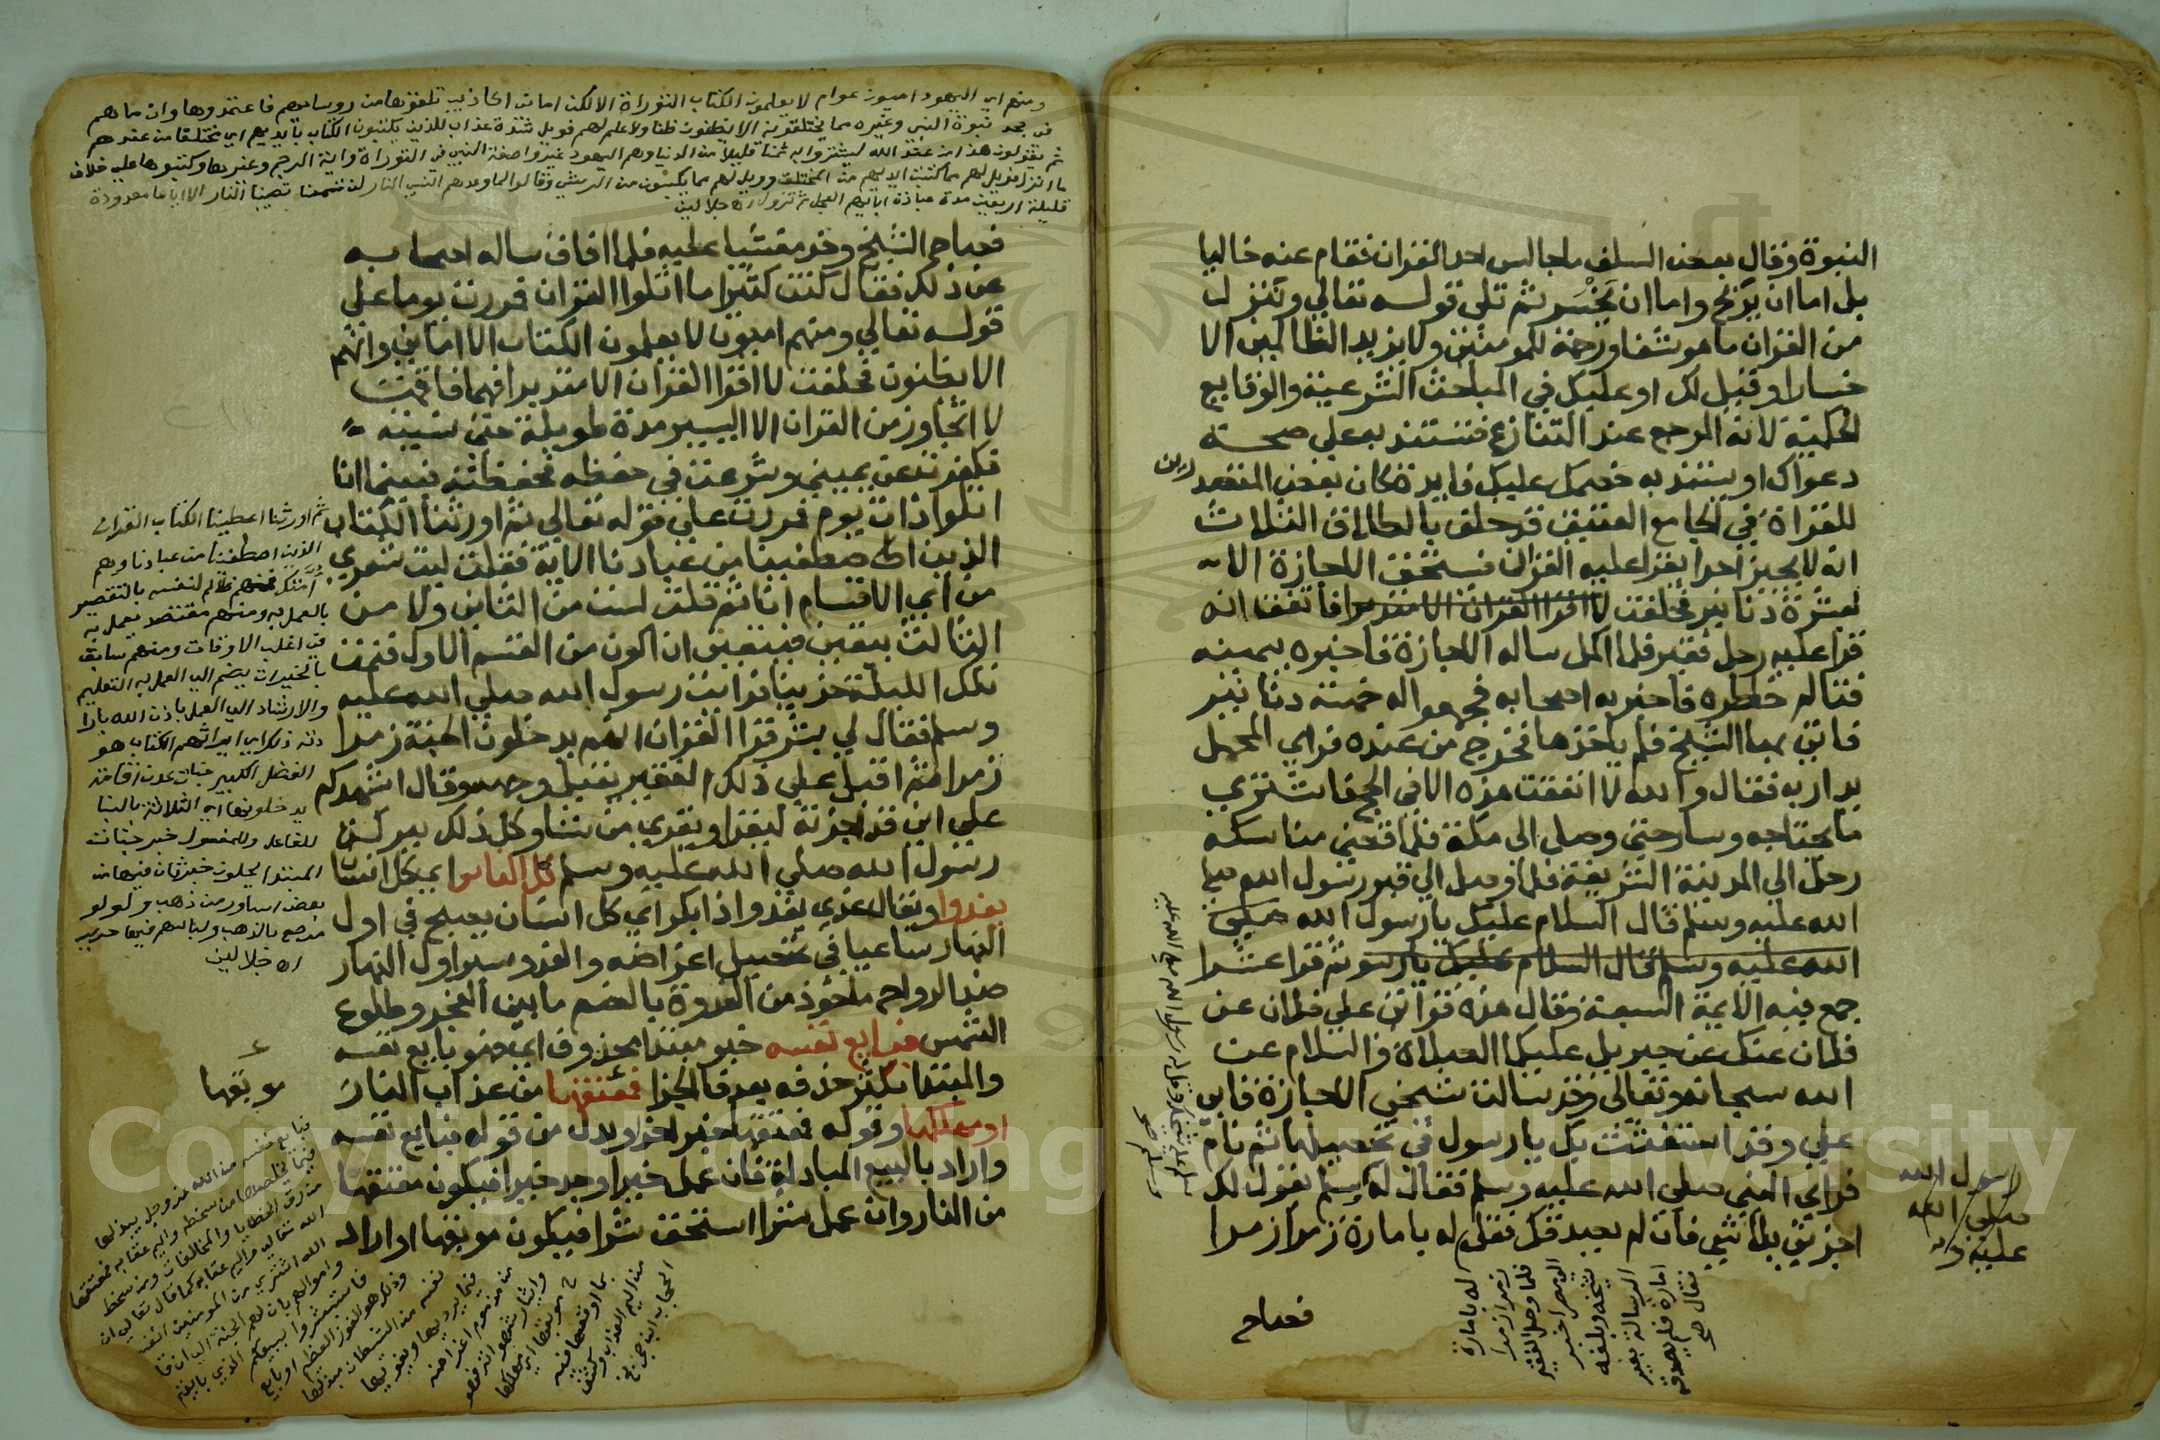 النبوة وقال بعض السلف ما جالس احد القران فقام عنه خاليا
بل اما ان يربح واما ان يخسر ثم تلى قوله تعالي وننزل
من القران ما هو شفا ورحمة للمومنين ولا يزيد الظالمين الا
خسارا وقيل لك او عليك في المباحث الشرعية والوقايع
الحكمية لانه المرجع عند التنازع فتستند به علي صحة
دعواك او يستند به خصمك عليك فايدة كان بعض المتصدرين
للقراة في الجامع العتيق قد حلف بالطلاق الثلاث
انه لا يجيز احدا يقرا عليه القران فيستحق الاجازة الا بـ
عشرة دنانير فحلفت لا اقرا القران الا متدبرا فاتفق انه
قرا عليه رجل فقير فلما اكمل ساله الاجازة فاخبره بيمينه
فتالم خاطره فاخبر به اصحابه فجمعوا له خمسة دنانير
فاتى بها الشيخ فلم ياخذها فخرج من عنده فراي المحمل
يدار به فقال والله لا انفقت هذه الا في الحج فاشتري
ما يحتاجه وسار حتى وصل الى مكة فلما قضى مناسكه
رحل الى المدينة الشريفة فلما وصل الي قبر رسول الله صلي
الله عليه وسلم قال السلام عليك يا رسول الله صلى
الله عليه وسلم قال السلام عليك يا رسو ثم قرا عشرا
جمع فيه الايمة السبعة وقال هذه قراتي علي فلان عن
فلان عنك عن جبريل عليكما الصلاة والسلام عن
الله سبحانه وتعالى وقد سالت شيخي الاجازة فابى
علي وقد استغثت بك يا رسول في تحصيلها ثم نام
فراي النبي صلي الله عليه وسلم فقال له سلم يقول لك
اجزني بلا شي فان لم يصدقك فقل له بامارة زمرا زمرا
رسول الله
صلى الله
عليه و
له بامارة
زمرا زمرا
فلما وصل الفقير
الي مصر اخبر
شيخه وبلغه
الرسالة بغير
امارة فلم يصدقه
فقال صح
فصاح
ومنهم اي اليهود اميون عوام لا يعلمون الكتاب التوراة الا لكن اماني اكاذيب تلقوها من روسايهم فاعتمدوها وان ما هم
في جحد نبوة النبي وغيره مما يختلقونه الا يظنون ظنا ولا علم لهم فويل شدة عذاب للذين يكتبون الكتاب بايديهم اي مختلقا من عندهم
ثم يقولون هذا من عند الله ليشتروا به ثمنا قليلا من الدنيا وهم اليهود غيروا صفة النبي في التوراة واية الرجم وغيرها وكتبوها علي خلاف
ما انزل فويل لهم مما كتبت ايديهم من المختلق وويل لهم مما يكسبون من الرشي وقالوا لما وعدهم النبي النار لن تمسنا تصيبنا النار الا اياما معدودة
قليلة اربعين مدة عبادة ابايهم العجل ثم تزول اه جلالين
فصاح الشيخ وخر مغشيا عليه فلما افاق ساله اصحابه
عن ذلك فقال كنت كثيرا ما اتلوا القران فمررت يوما على
قوله تعالي ومنهم اميون لا يعلمون الكتاب الا اماني وانهم
الا يظنون فحلفت لا اقرا القران الا متدبرا فهما فاقمت
لا اتجاوز من القران الا اليسير مدة طويلة حتى نسيته
فكفرت عن يميني وشرعت في حفظه فحفظته فبينما انا
اتلوا ذات يوم فمررت علي قوله تعالي ثم اورثنا الكتاب
الذين اصطفينا من عبادنا الاية فقلت ليت شعري
من اي الاقسام انا ثم قلت لست من الثاني ولا من
الثالث بيقين فيتعين ان اكون من القسم الاول فنمت
تلك الليلة حزينا فرايت رسول الله صلي الله عليه
وسلم فقال لي بشر قرا القران انهم يدخلون الجنة زمرا
زمرا ثم اقبل علي ذلك الفقير يقبل وجهه وقال اشهدكم
علي اني قد اجزته ليقرا ويقري من شا وكل ذلك ببركة
رسول الله صلي الله عليه وسلم كل الناس اي كل انسان
يغدوا ويقال غدي يغدوا اذا بكر اي كل انسان يصبح في اول
النهار ساعيا في تحصيل اغراضه والغدو سير اول النهار
ضد الرواح ماخوذ من الغدوة بالضم ما بين الفجر وطلوع
الشمس فبايع نفسه خبر مبتدا محذوف اي فهو بايع نفسه
والمبتدا يكثر حذفه بعد فا الجزا فمعتقها من عذاب النار
او مهلكها وقوله فمعتقها خبر اخر او بدل من قوله فبايع نفسه
واراد بالبيع المبادلة فان عمل خيرا وجد خيرا فيكون معتقها
من النار وان عمل شرا استحق شرا فيكون موبقها او اراد
ثم اورثنا اعطينا الكتاب القران
الذين اصطفينا من عبادنا وهم
امتك فمنهم ظالم لنفسه بالتقصير
بالعمل به ومنهم مقتصد يعمل به
في اغلب الاوقات ومنهم سابق
بالخيرات يضم الي العمل به التعليم
والارشاد الي العمل باذن الله بارا
دته ذلك اي ايراثهم الكتاب هو
الفضل الكبير جنات عدن اقامة
يدخلونها اي الثلاثة بالبنا
للفاعل وللمفعول خبر جنات
المبتدا يحلون خبر ثان فيها من
بعض اساور من ذهب ولولو
مرصع بالذهب ولباسهم فيها حرير
اه جلالين
موبقها
فبايع نفسه من الله عز وجل يبذلها
فيما يخلصها من سخطه واليم عقابه فمعتقها
من رق الخطايا والمخالفات ومن سخط
الله تعالى واليم عقابه كما قال تعالى ان
الله اشتري من المومنين انفسهم
واموالهم بان لهم الجنة الي ان قا
فاستبشروا ببيعكم الذي بايعتم
وذلك هو الفوز العظيم او بايع
نفسه من الشيطان يبذلها
فيما يرديها ويغويها
من مذموم اغراضه